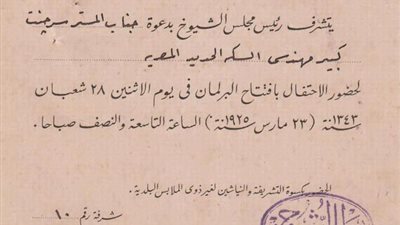 يتشرف رئيس مجلس الشيوخ بدعوة جناب المستر سرجنت
كبير مهندسى السكة الحديد المصرية
لحضور الاحتفال بافتتاح البرلمان فى يوم الاثنين ٢٨ شعبان
سنة ١٣٤٣ (٢٣ مارس سنة ١٩٢٥) الساعة التاسعة والنصف صباحا.
الحضور بكسوة التشريفة والنياشين لغير ذوى الملابس البلدية.
شرفة رقم ١٠